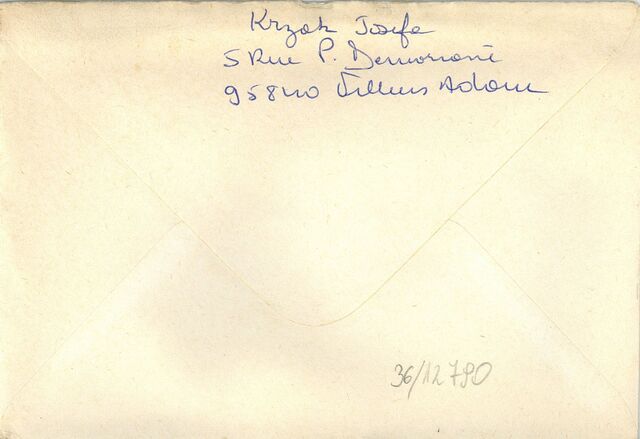 Krzak Josefa
5 Rue P.
95840 Villiers Adam
36/12790